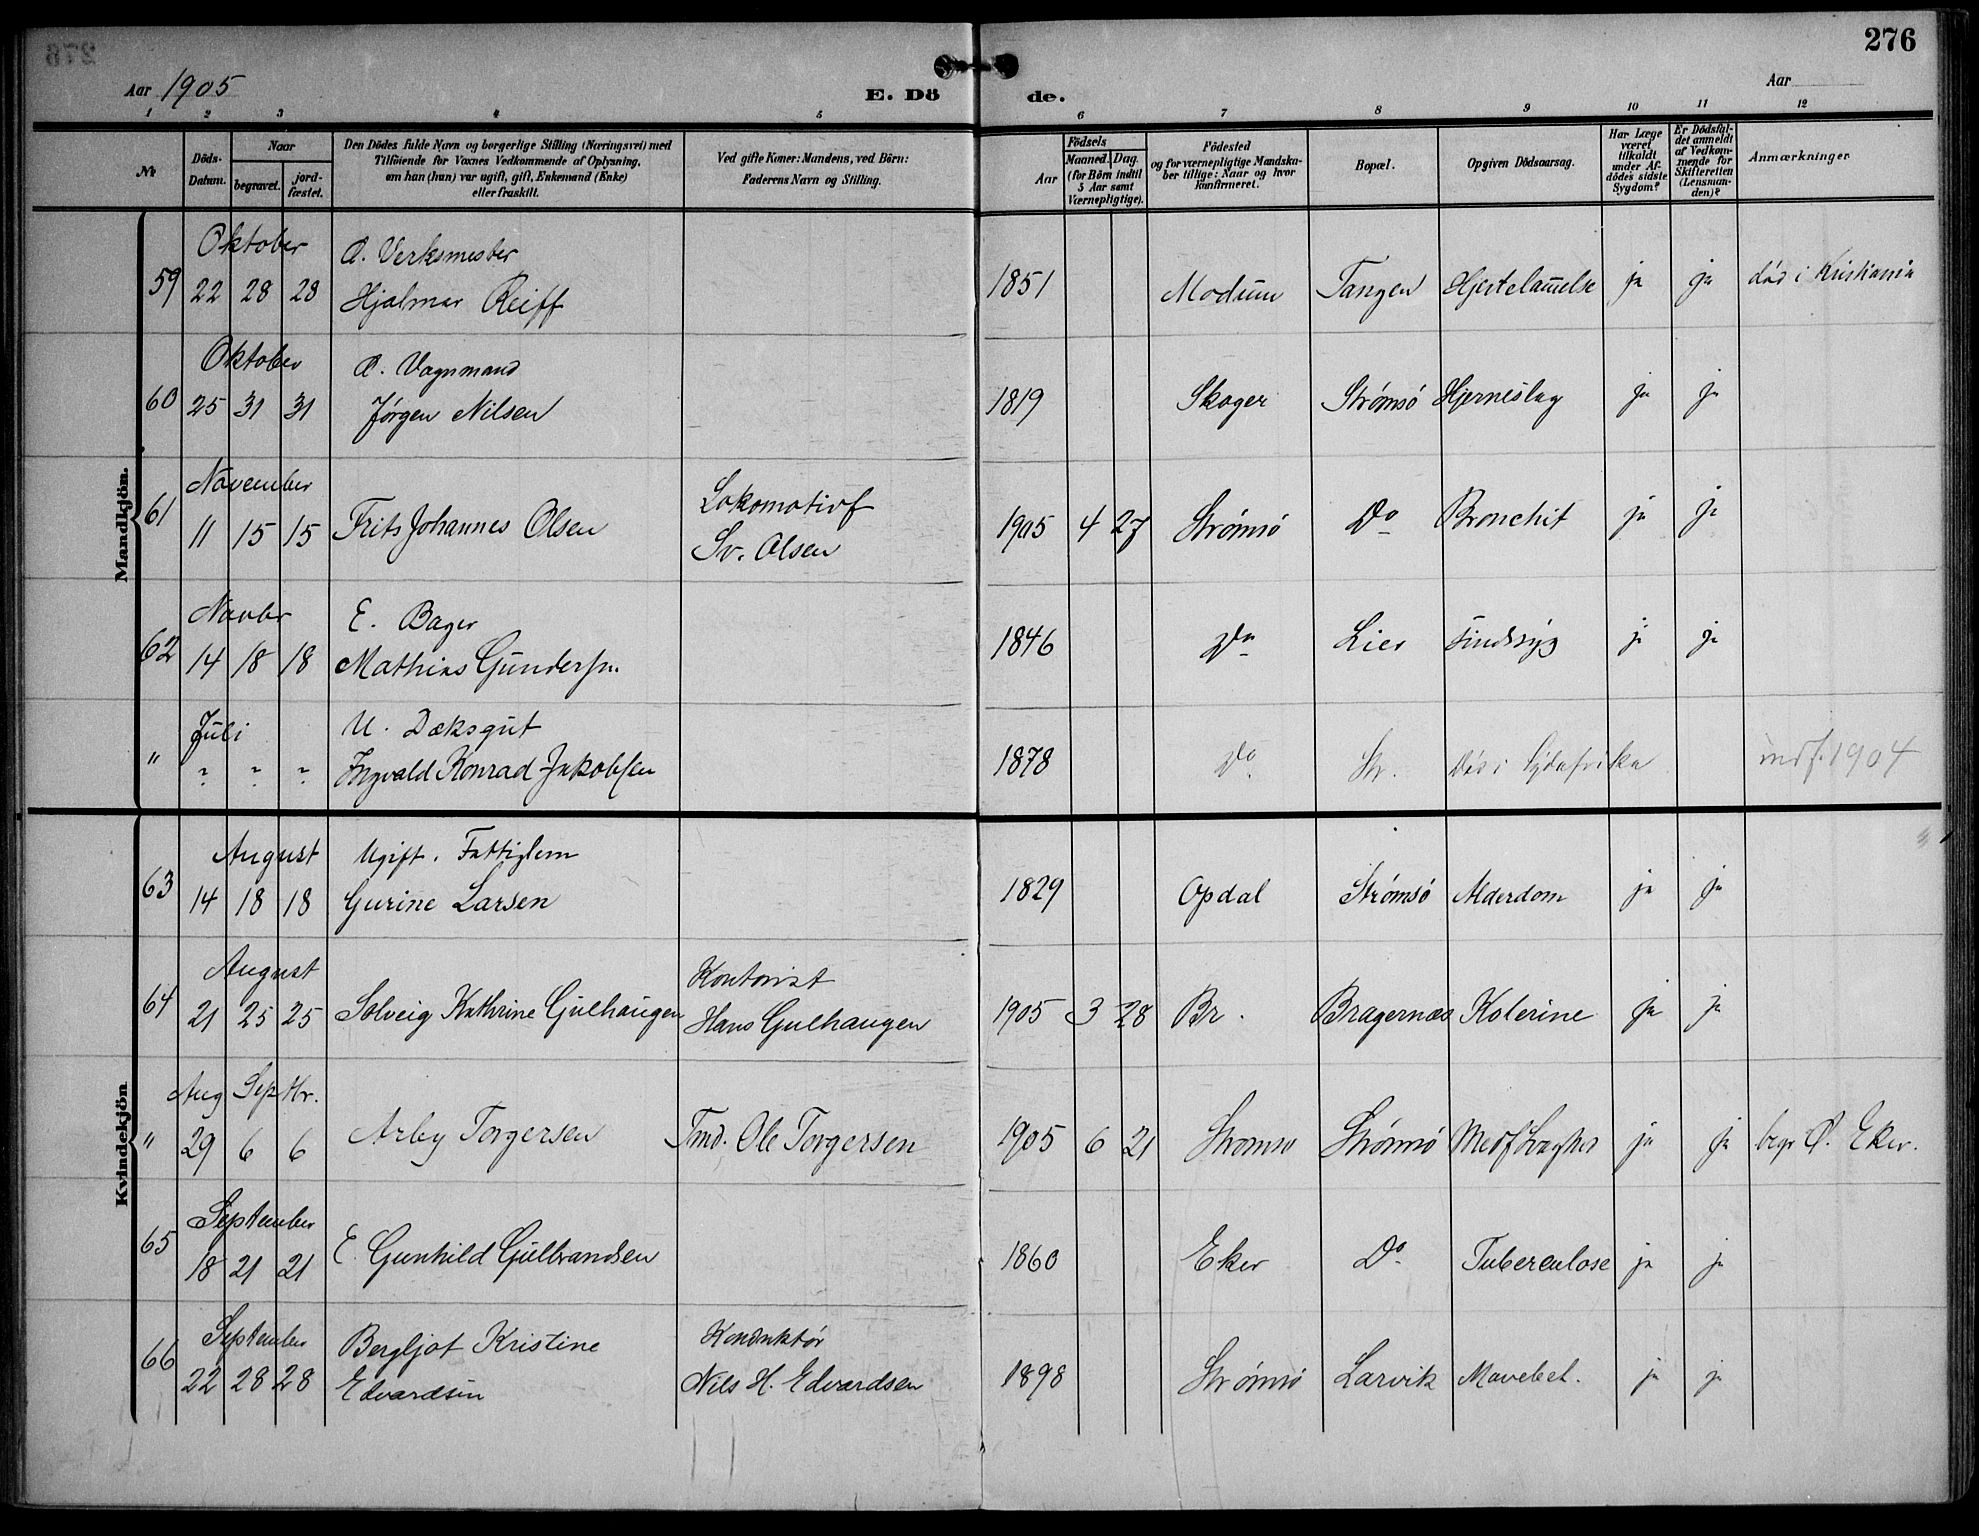 276
Aar 1905
E. Dö de.
Aar
1 2 3 4 5 6 7 8 9 10 11 12
Nr.
Döds-Datum.
Naar
begravet.
jord-fæstet.
Den Dödes fulde Navn og borgerlige Stilling (Næringsvei) med
Tilföiende for Voxnes Vedkommende af Oplysning,
om han (hun) var ugift, gift, Enkemand (Enke)
eller fraskilt.
Ved gifte Koner: Mandens, ved Börn:
Faderens Navn og Stilling.
Födsels
Aar
Maaned. Dag.
(for Börn indtil
5 Aar samt
Værnepligtige).
Födested
og for værnepligtige Mandska-
ber tillige: Naar og hvor
konfirmeret.
Bopæl.
Opgiven Dödsaarsag.
Har Læge
været
tilkaldt
under Af-
dödes sidste
Sygdom?
Er Dödsfal-
det anmeldt
af Vedkom-
mende for
Skifteretten
(Lensman-
den)?
Anmærkninger
Mandkjön.
Oktober Verksmester
59 22 28 28 Hjalmar Reiff 1851 Modum Tangen Hjertelammelse ja ja död i Kristiania
Oktober Vognmand
60 25 31 31 Jørgen Nilsen 1819 Skoger Strømsö Hjerneslag ja ja
November Lokomotivf
61 11 15 15 Frits Johannes Olsen Sv. Olsen 1905 4 27 Strømsö Do Bronchit ja ja
Novbr E. Bager
62 14 18 18 Mathias Gundersen 1846 Do Lier Sindssyg ja ja
Juli U. Dæksgut
" - - - Ingvald Konrad Jakobsen 1878 Do Str. Död i Sydafrika indf. 1904
Kvindekjön
August Ugift. Fattiglem
63 14 18 18 Gurine Larsen 1829 Opdal Strømsö Alderdom ja ja
August Kontorist
64 21 25 25 Solveig Kathrine Gulhaugen Hans Gulhaugen 1905 3 28 Br. Bragernæs Kolerine ja ja
Aug Septbr.
" 29 6 6 Arby Torgersen Tmd. Ole Torgersen 1905 6 21 Strømsö Strømsö ja ja begr Ø. Eker.
September
65 18 21 21 E. Gunhild Gulbrandsen 1860 Eker Do Tuberculose ja ja
September Bergljot Kristine Konduktør
66 22 28 28 Edvardsen Nils H. Edvardsen 1898 Strømsö Larvik Mavebet. ja ja